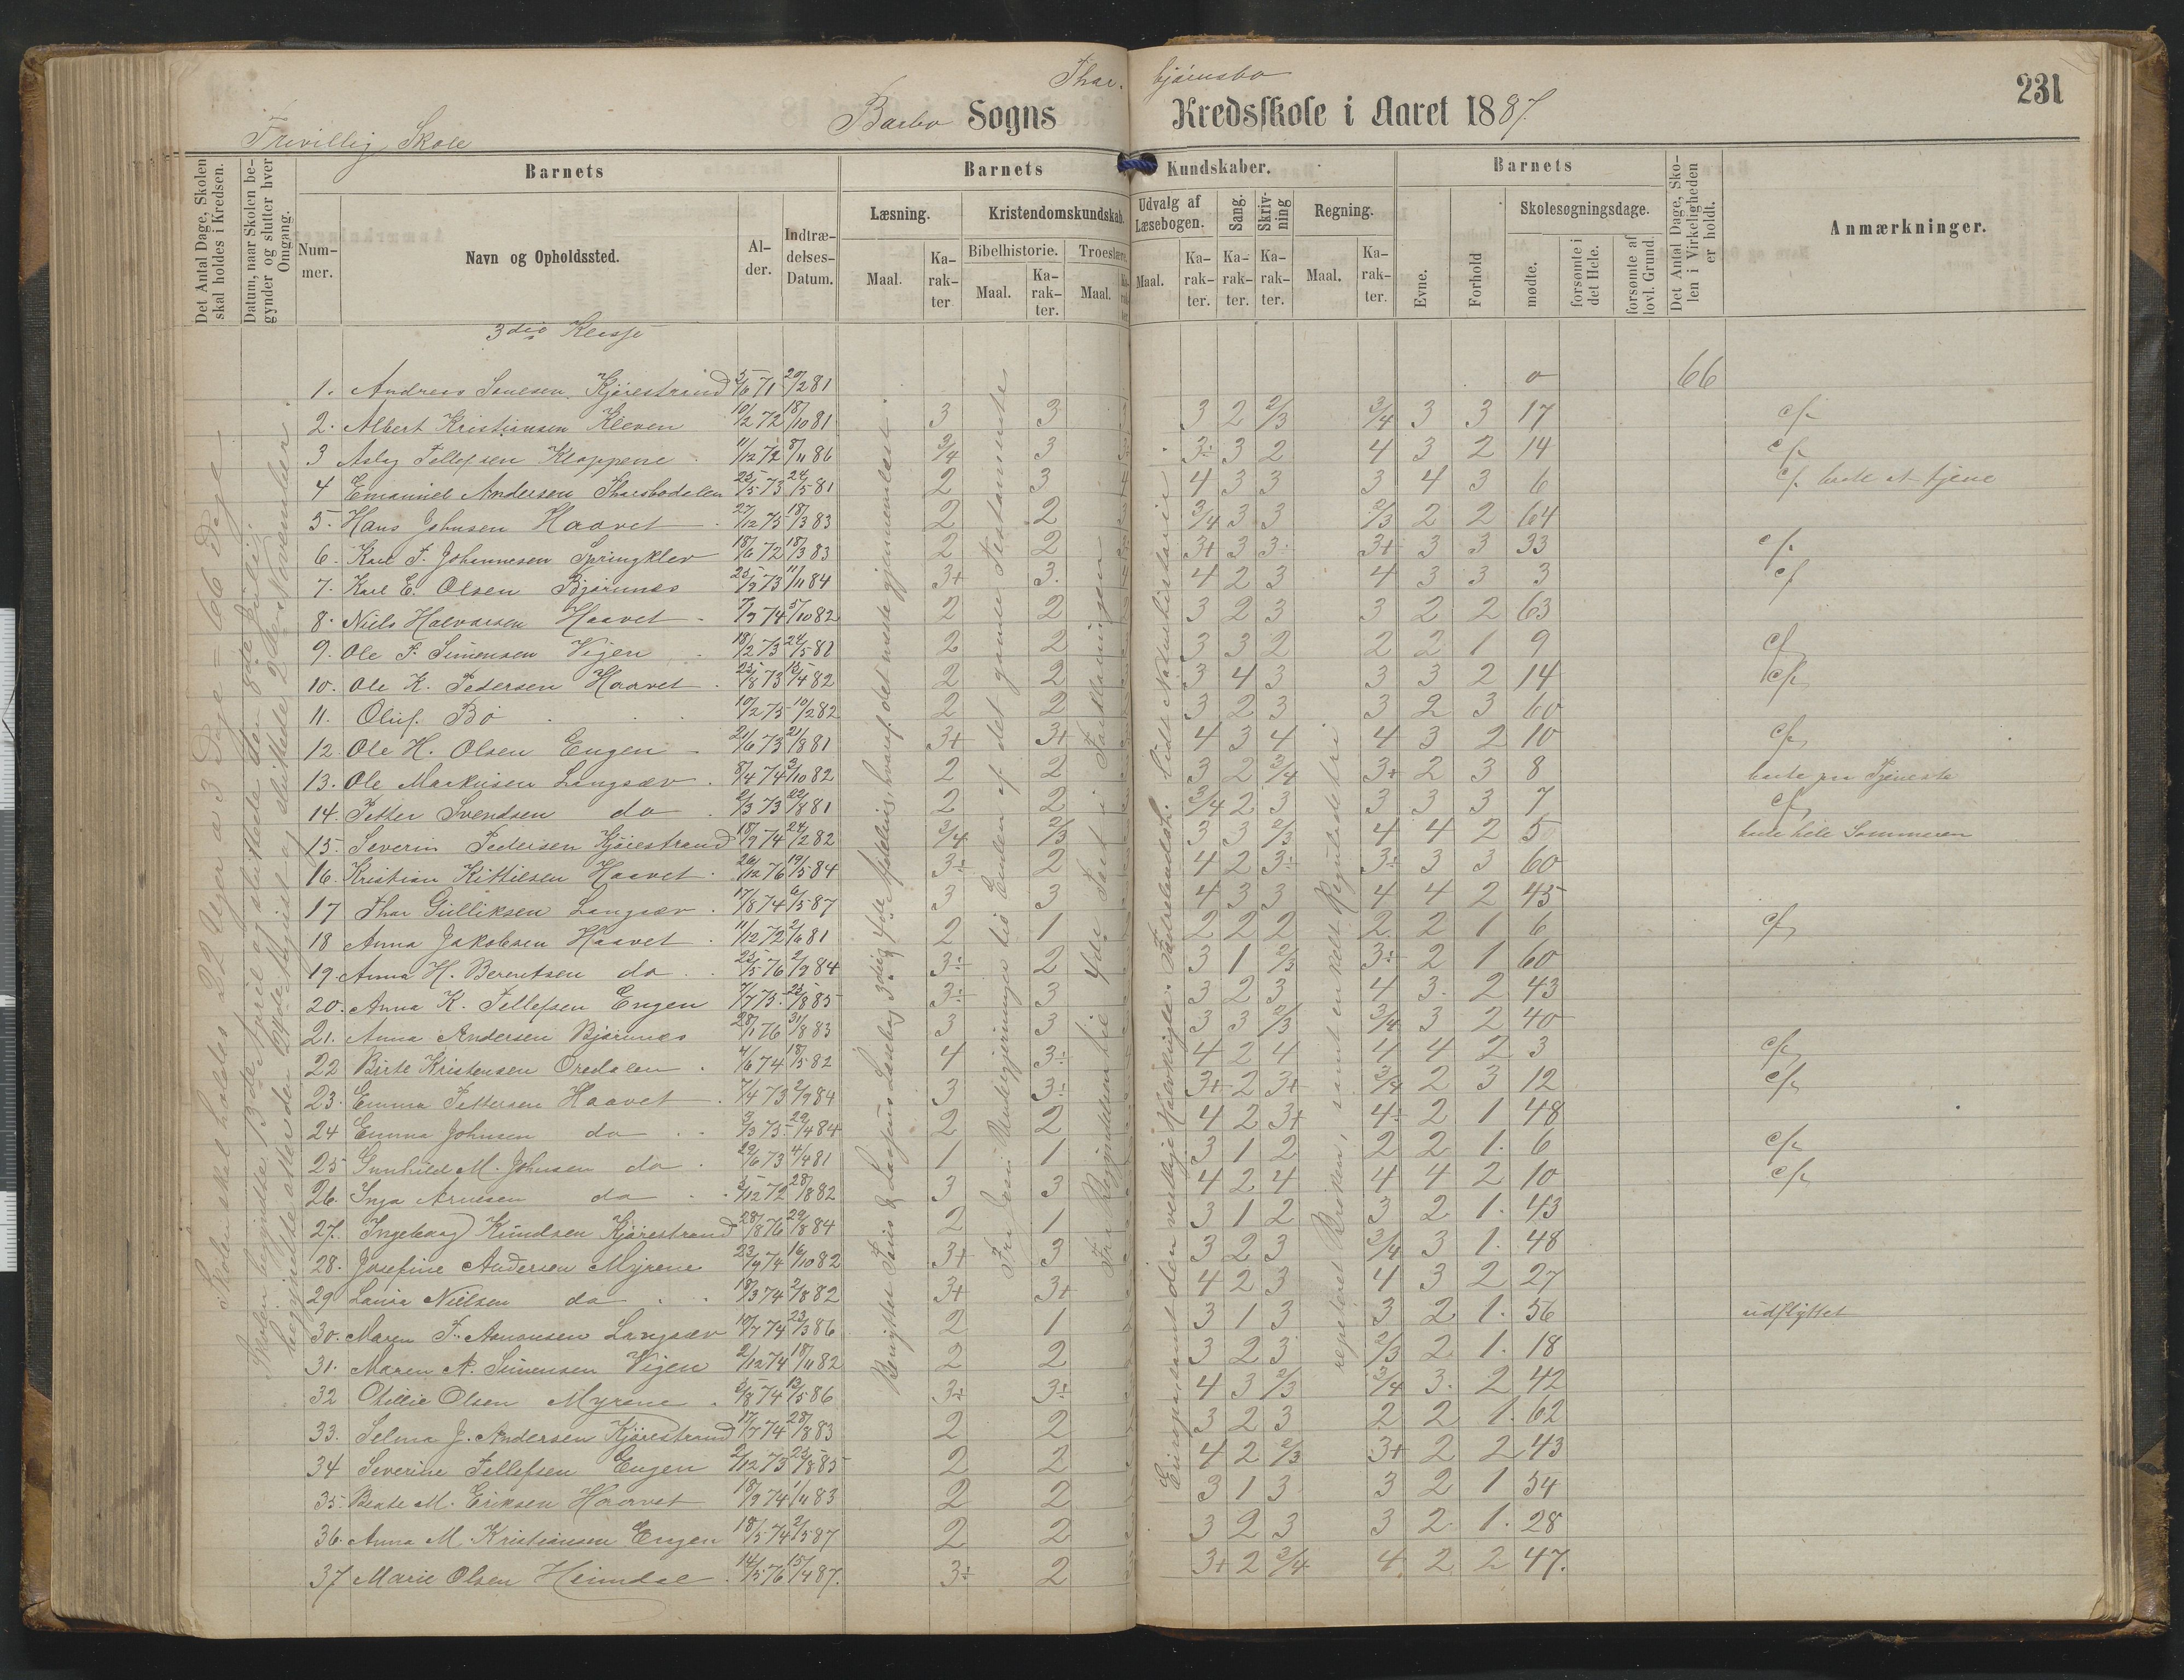 231
Thor. bjørnsbo
Barbo Sogns Kredsskole i Aaret 1887.
Frivillig Skole
Det Antal Dage, Skolen skal holdes i Kredsen.
Datum, naar Skolen begynder og slutter hver Omgang.
Barnets
Barnets Kundskaber.
Barnets
Det Antal Dage, Skolen i Virkeligheden er holdt.
Anmærkninger.
Nummer.
Navn og Opholdssted.
Alder.
Indtrædelses-Datum.
Læsning.
Kristendomskundskab.
Udvalg af Læsebogen.
Sang.
Skrivning
Regning.
Skolesøgningsdage.
Bibelhistorie.
Troeslære.
Maal.
Karakter
Maal.
Karakter.
Maal.
Karakter.
Maal.
Karakter.
Karakter.
Karakter.
Maal.
Karakter.
Evne.
Forhold
mødte.
forsømte i det Hele.
forsømte af lovl. Grund.
3die Klasse
1. Andreas Kjørestrand 5/6 71 29/2 81 0 66
2. Albert Kristiansen Kleven 10/2 72 18/10 81 3 3 3 2 2/3 3/4 3 3 17 c/f.
3 Aslag Tellefsen Kloppene 11/12 72 8/11 86 3/4 3 3÷ 3 2 4 3 2 14 c/f
4 Emanuel Andersen 25/5 73 24/5 81 2 3 4 3 3 3 4 3 6 c/f.
5. Hans Johnsen Haavet 27/12 75 18/3 83 2 2 3/4 3 3 2/3 2 2 64
6. Karl F. Johannesen Springklev 18/6 72 18/3 83 2 2 3+ 3 3 3+ 3 3 33 c/f.
7. Karl E. Olsen Bjørnnes 25/9 73 11/11 84 3+ 3. 4 2 3 4 3 3 3 c/f
8. Niels Halvorsen Haavet 7/3 74 5/10 82 2 2 3 2 3 3 2 2 63
9. Ole F. Simonsen Vejen 18/2 73 24/5 81 2 2 3 3 2 2 2 1 9 c/f
10. Ole K. Pedersen Haavet 25/8 73 15/4 82 2 2 3 4 3 3 3 2 14 c/f
11. Oluf Bø 10/2 75 10/2 82 2 2 3 2 3 3 2 3 60
12. Ole H. Olsen Engen 21/6 73 21/8 81 3+ 3+ 4 3 4 4 3 2 10 c/f
13. Ole Markusen Langsæv 8/4 74 3/10 82 2 2 3 2 3/4 3+ 2 3 8 borte paa Tjeneste
14. Petter Svendsen do 2/3 73 22/8 81 2 2 3/4 2 3 3 3 3 7 c/f
15. Severin Pedersen Kjørestrand 18/9 74 24/2 82 3/4 2/3 3 3 2/3 4 4 2 5 borte hele Sommeren
16. Kristian Kittilsen Haavet 26/12 76 19/5 84 3÷ 2 4 2 3÷ 3÷ 3 3 60
17 Thor Gulliksen Langsæv 17/8 74 6/5 87 3 3 4 3 3 4 4 2 45
18 Anna Jakobsen Haavet 11/12 72 2/6 81 2 1 2 2 2 2 2 1 6 c/f
19. Anna H. Berentsen do 25/5 76 2/9 84 3÷ 2 3 1 2/3 3÷ 2 1 60
20. Anna K. Tellefsen Engen 7/7 75 25/8 85 3÷ 3 3 2 3 4 3. 2 43
21. Anna Andersen Bjørnnes 28/1 76 31/8 83 3 3 3 3 2/3 3/4 3 2 40
22 Birte Kristensen Øredalen 4/6 74 18/5 82 4 3÷ 4 2 4 4 4 2 3 c/f
23. Emma Pettersen Haavet 7/4 73 2/9 84 3 3÷ 3+ 2 3+ 3/4 2 3 12 c/f
24 Emma Johnsen do 3/3 75 29/4 84 2 2 4 2 3+ 4÷ 2 1 48
25 Gunhild M. Johnsen do 29/6 73 4/4 81 1 1 3 1 2 2 2 1. 6 c/f
26. Inga Arnesen do 5/12 72 28/8 82 3 3 4 2 4 4 4 2 10 c/f
27. Ingeborg Knudsen Kjørestrand 28/8 76 29/8 84 2 1 3 1 2 3 2 1. 43
28. Josefine Andersen Myrene 23/9 74 16/10 82 3+ 3 3 2 3 3/4 3 1. 48
29 Laura Nielsen do 18/3 74 2/8 82 3+ 3+ 4 2 3 4 3 2 27
30. Maren F. Asmonsen Langsæv 19/7 74 23/3 86 2 1 3 1 3 3 2 1. 56 udflyttet
31. Maren A. Simonsen Vejen 2/12 74 18/11 82 2 2 3 2 3 2/3 2 1. 18
32 Otillie Olsen Myrene 6/8 74 13/5 86 3÷ 3÷ 4 3 2/3 3/4 3. 2 42
33. Selma J. Andersen Kjørestrand 17/7 74 28/8 83 2 2 3 2 3 2 2 1. 62
34 Severine Tellefsen Engen 2/12 73 25/8 85 2 2 4 2 2/3 3+ 2 2 43
35. Beate M. Eriksen Haavet 18/9 74 1/11 83 2 2 3 1 3 3 2 1 54
36. Anna M. Kristiansen Engen 18/5 74 2/5 87 2 2 3 2 3 3 2 1. 28
37 Marie Olsen Heimdal 14/5 76 15/4 87. 3÷ 2 3+ 2 3/4 4 2 2 47.
Skolen skal holdes 22 Uger a 3 Dage = 66 Dage
Skolen begyndte 13de April og sluttede den 8de Juli;
begyndte atter den 24de August og sluttede 2den November.
Fra Jesu Undergjerninger til Enden af det gamle Testamente
Fra Begyndelsen til 4de Part i Forklaringen